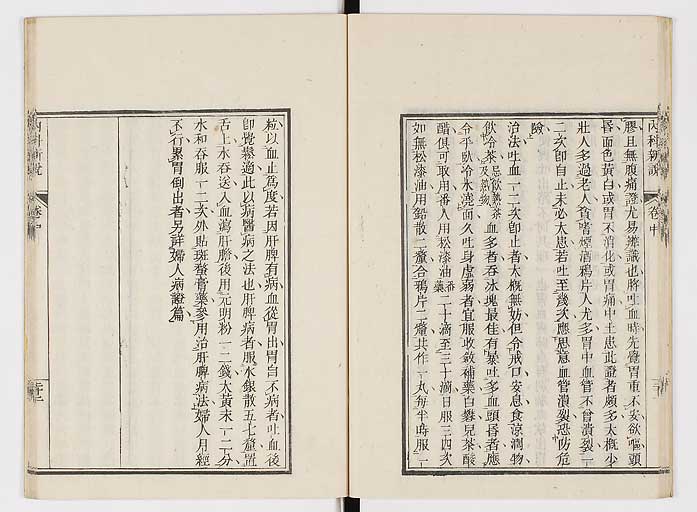 內科新說
卷中
膠且無腹痛證尤易辨識也將吐血時先覺胃重不安欲嘔頭
唇面色黃白或胃不消化或胃痛中土患此證者頗多大概少
壯人多過老人貪嗜煙酒鴉片人尤多胃中血管不曾潰裂一
二次卽自止未必大患若吐至幾次應思慮血管潰裂恐防危
險
治法吐血一二次卽止者大概無妨但令戒口安息食涼潤物
飲冷茶忌飲熱茶及熱物血多者吞冰塊最佳有暴吐多血頭昏者應
令平臥冷水澆面久吐身虛弱者宜服收斂補藥白礬兒茶酸
醋俱可取用番人用松漆油番藥二十滴至三十滴日服三四次
如無松漆油用鉛散二釐合鴉片二釐共作一丸每半時服一
粒以血止為度若因肝脾有病血從胃出胃自不病者吐血後
卽覺舒適此以病醫病之法也肝脾病者服水銀散五七釐置
舌上水吞送入血瀉肝膽後用元明粉一二錢大黃末一二分
水和吞服一二次外貼斑蝥膏藥參用治肝脾病法婦人月經
不行累胃倒出者另詳婦人病證篇
內科新說
卷中